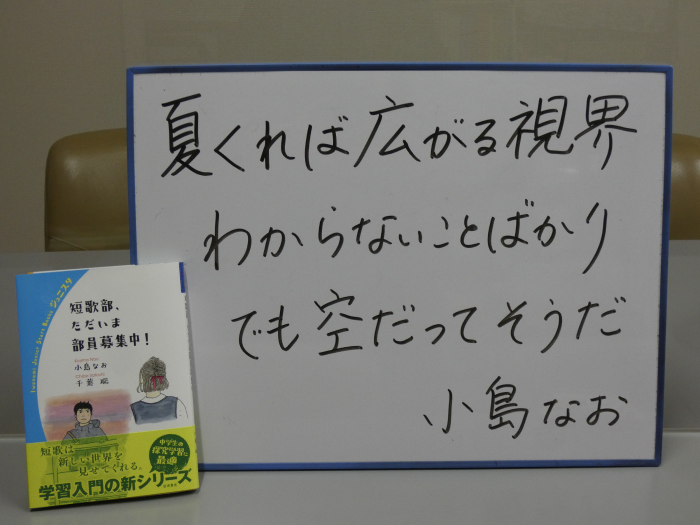 夏くれば広がる視界
わからないことばかり
でも空だってそうだ
小島なお
Iwanami Junior Start Books ジュニスタ
短歌部、
ただいま
部員募集中!
小島なお
千葉 聡
短歌は
新しい世界を
見せてくれる。
中学生の
探究学習に
最適
学習入門の新シリーズ